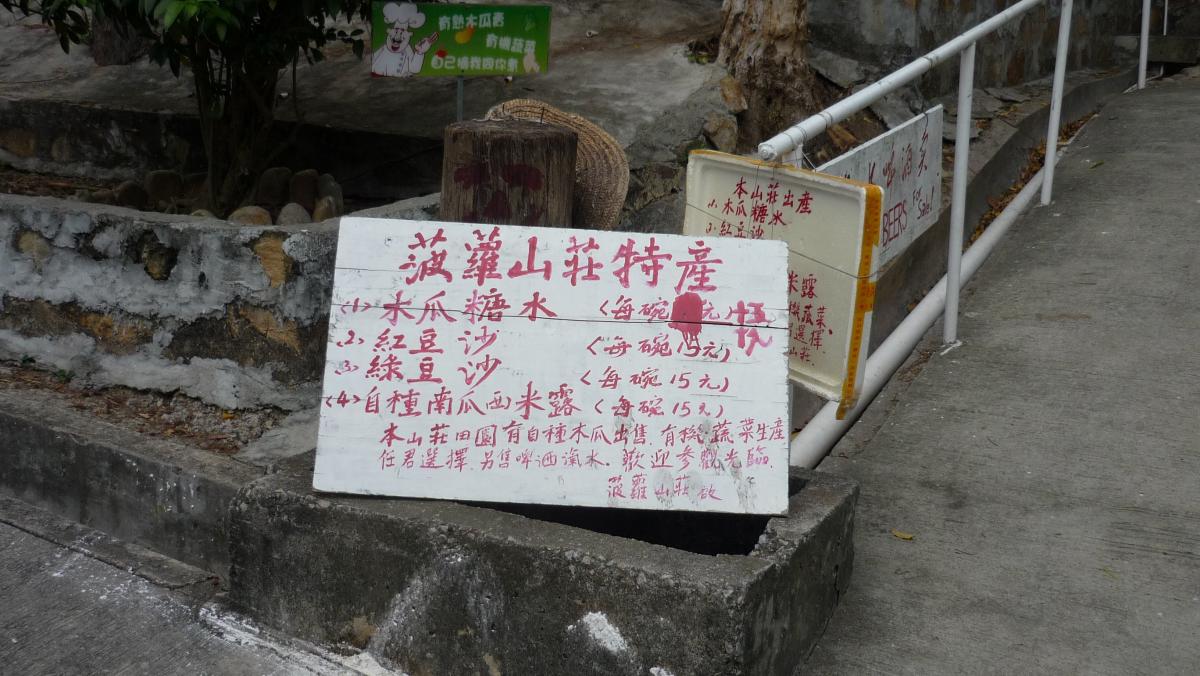 有熟木瓜賣
有機蔬菜
自己
菠蘿山莊特產
(1) 木瓜糖水 (每碗 元)
(2) 紅豆沙 (每碗15元)
(3) 綠豆沙 (每碗15元)
(4) 自種南瓜西米露 (每碗15元)
本山莊田園有自種木瓜出售.有機蔬菜生產
任君選擇.另售啤酒汽水.歡迎參觀光臨.
菠蘿山莊啟
本山莊出産
木瓜糖水
紅豆沙
米露
蔬菜
選擇.
山莊
啤酒賣
BEERS For Sale!